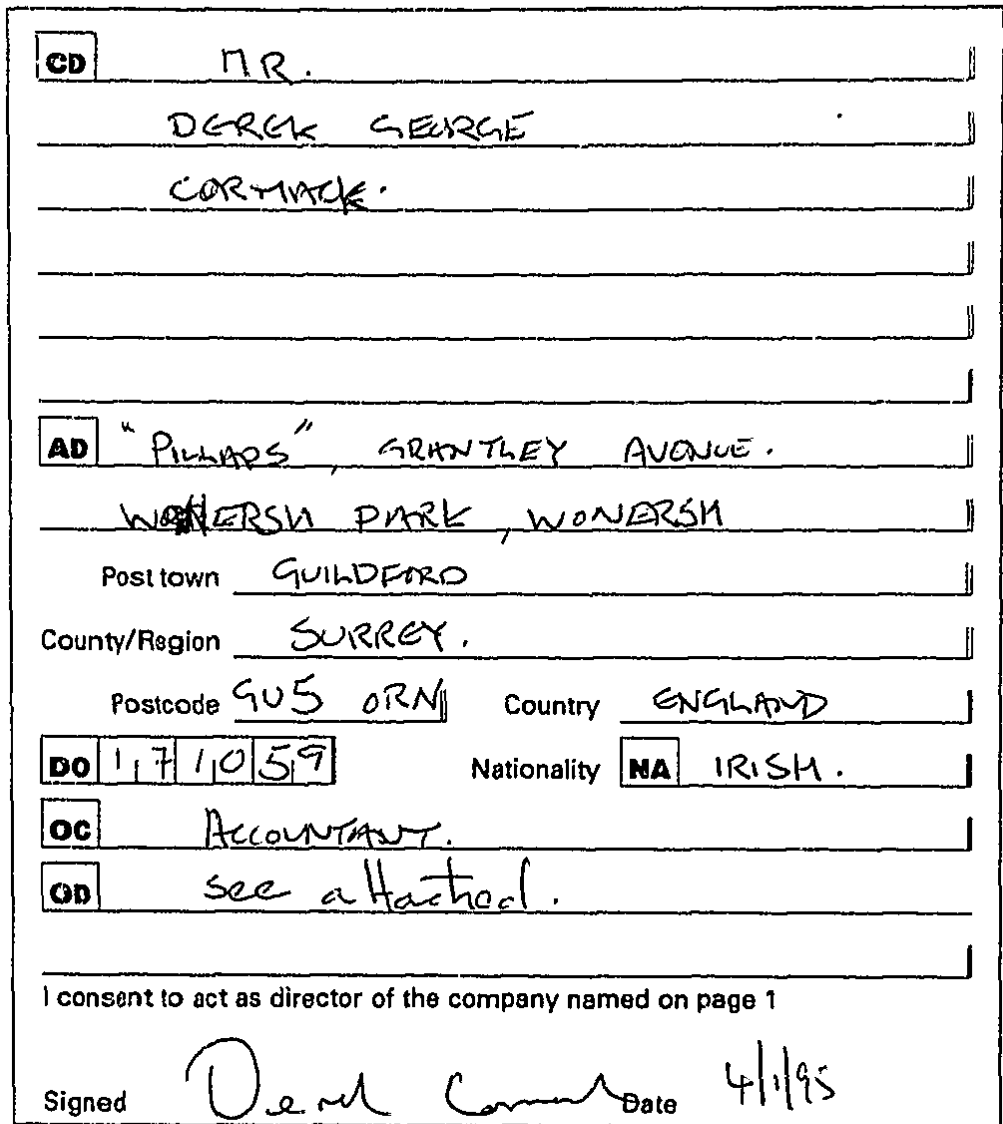 CD MR.
DEREK GEORGE
CORMACK.
AD "PILLARS", GRANTLEY AVENUE.
WONERSH PARK, WONERSH
Post town GUILDFORD
County/Region SURREY.
Postcode GU5 0RN Country ENGLAND
DO 17 10 59 Nationality NA IRISH.
OC ACCOUNTANT.
OD see attached.
I consent to act as director of the company named on page 1
Signed Derek Cormack Date 4/1/95